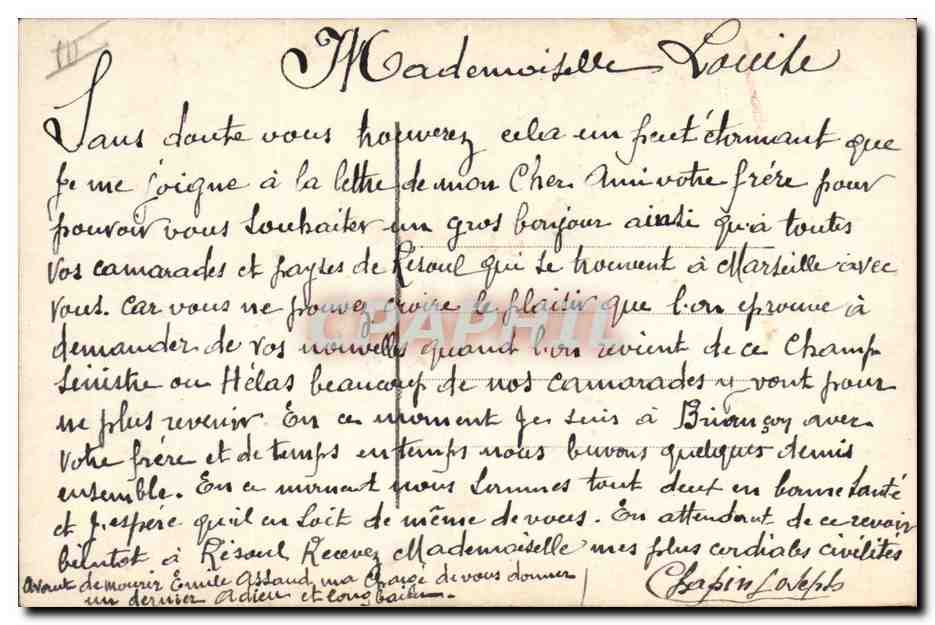 III
Mademoiselle Louise
Sans doute vous trouverez cela un peut étonnant que
Je me joigne à la lettre de mon Cher Ami votre frère pour
pouvoir vous souhaiter un gros bonjour ainsi qu'à toutes
vos camarades et payses de Risoul qui se trouvent à Marseille avec
vous. car vous ne pouvez croire le plaisir que l'on eprouve à
demander de vos nouvelles quand l'on revient de ce Champ
Sinistre ou Hélas beaucoup de nos camarades y vont pour
ne plus revenir. En ce moment Je suis à Briançon avec
votre frère et de temps en temps nous buvons quelques demis
ensemble. En ce moment nous sommes tout deux en bonne santé
et J'espère qu'il en soit de même de vous. En attendant de ce revoir
bientot à Risoul Recevez Mademoiselle mes plus cordiales civilités
Avant de mourir Emile Assaud ma chargé de vous donner
un dernier Adieu et long baiser.
Chapin Joseph
CPAPHIL